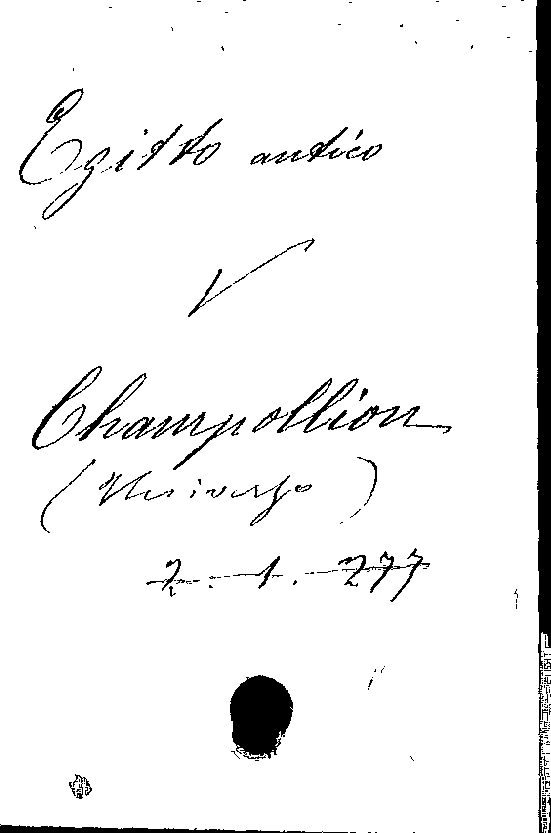 Egitto antico
V
Champollion
(Universo)
2. 1. 277